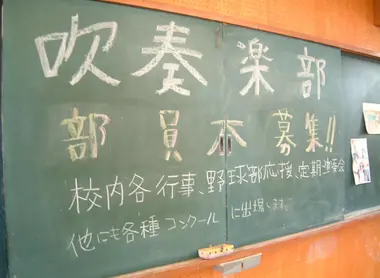 吹奏楽部
部員大募集!!
校内各行事、野球部応援、定期演奏会
他にも各種コンクールに出場します。